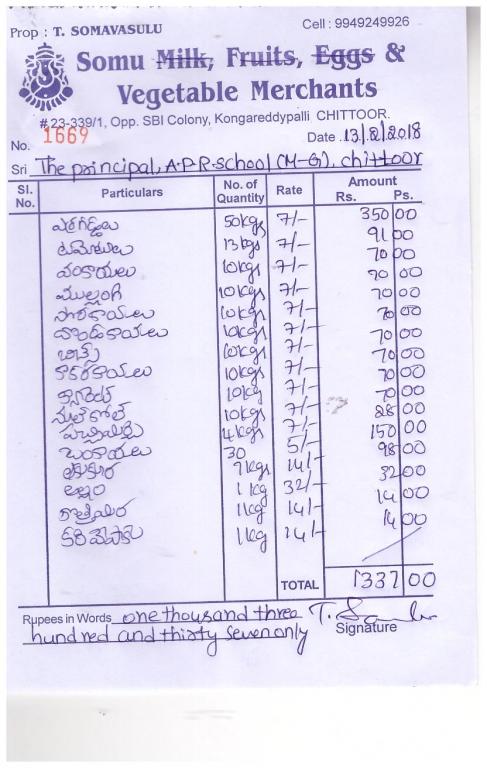 Prop : T. SOMAVASULU Cell : 9949249926
Somu Milk, Fruits, Eggs &
Vegetable Merchants
# 23-339/1, Opp. SBI Colony, Kongareddypalli, CHITTOOR.
No. 1669 Date 13/2/2018
Sri The principal, A.P.R.school (M-G), chittoor
Sl. No. Particulars No. of Quantity Rate Amount Rs. Ps.
ఎర్రగడ్డలు 50kgs 7/- 350 00
టమోటలు 13kgs 7/- 91 00
వంకాయలు 10kgs 7/- 70 00
ముల్లంగి 10kgs 7/- 70 00
సొరకాయలు 10kgs 7/- 70 00
బెండకాయలు 10kgs 7/- 70 00
బీన్స్ 10kgs 7/- 70 00
కాకరకాయలు 10kgs 7/- 70 00
క్యారెట్ 10kg 7/- 70 00
నూల్‌కోల్ 10kgs 7/- 70 00
పచ్చిమిర్చి 4kgs 7/- 28 00
టెంకాయలు 30 5/- 150 00
ఆకుకూర 7kgs 14/- 98 00
అల్లం 1kg 32/- 32 00
కొత్తిమీర 1kg 14/- 14 00
కరివేపాకు 1kg 14/- 14 00
TOTAL 1337 00
Rupees in Words one thousand three
hundred and thirty seven only
Signature